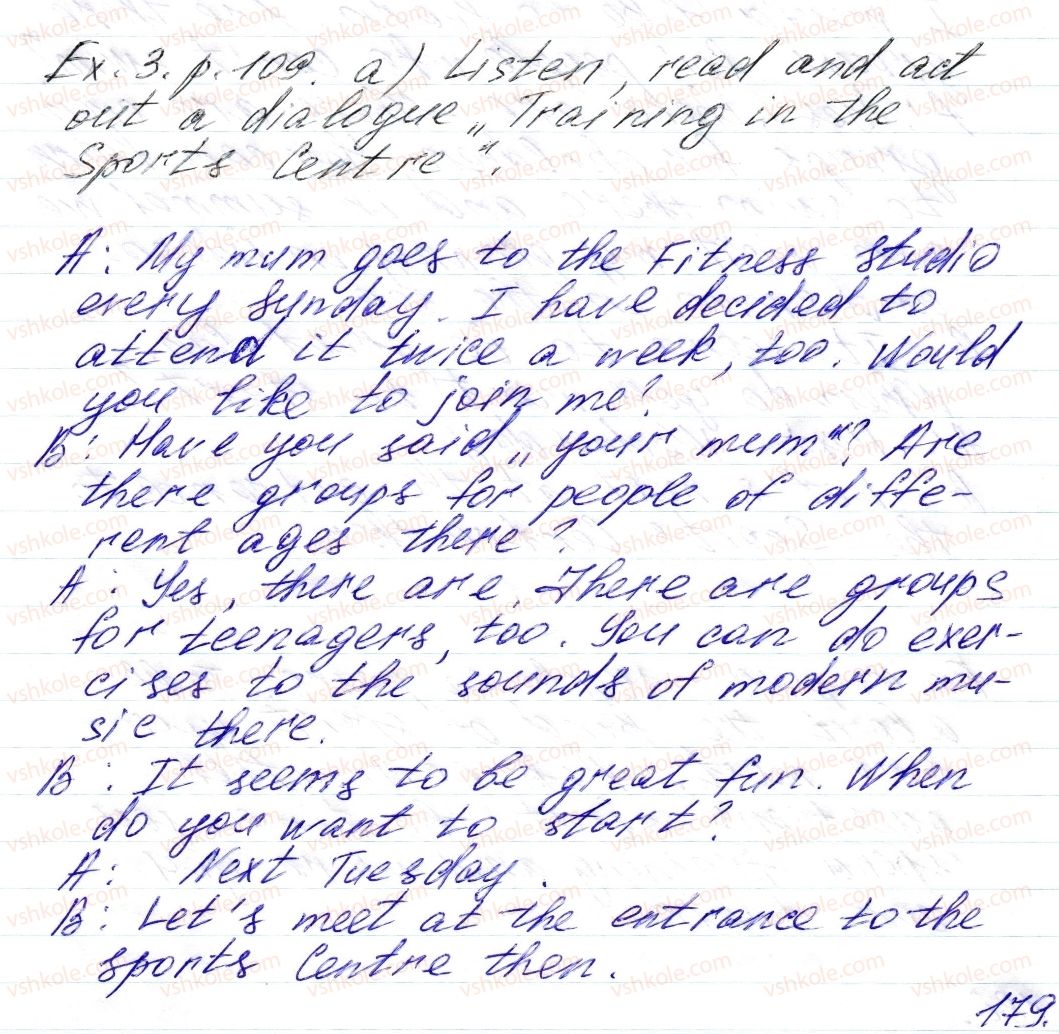 Ex. 3. p. 109. a) Listen, read and act
out a dialogue „Training in the
Sports Centre“.
A: My mum goes to the Fitness studio
every synday. I have decided to
attend it twice a week, too. Would
you like to join me?
B: Have you said „your mum“? Are
there groups for people of diffe-
rent ages there?
A: Yes, there are. There are groups
for teenagers, too. You can do exer-
cises to the sounds of modern mu-
sic there.
B: It seems to be great fun. When
do you want to start?
A: Next Tuesday.
B: Let's meet at the entrance to the
sports Centre then.
179.